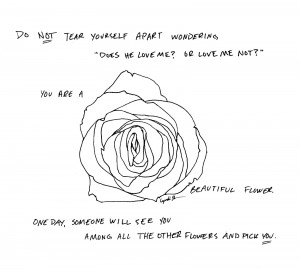 DO NOT TEAR YOURSELF APART WONDERING
"DOES HE LOVE ME? OR LOVE ME NOT?"
YOU ARE A
BEAUTIFUL FLOWER
ONE DAY, SOMEONE WILL SEE YOU
AMONG ALL THE OTHER FLOWERS AND PICK YOU.